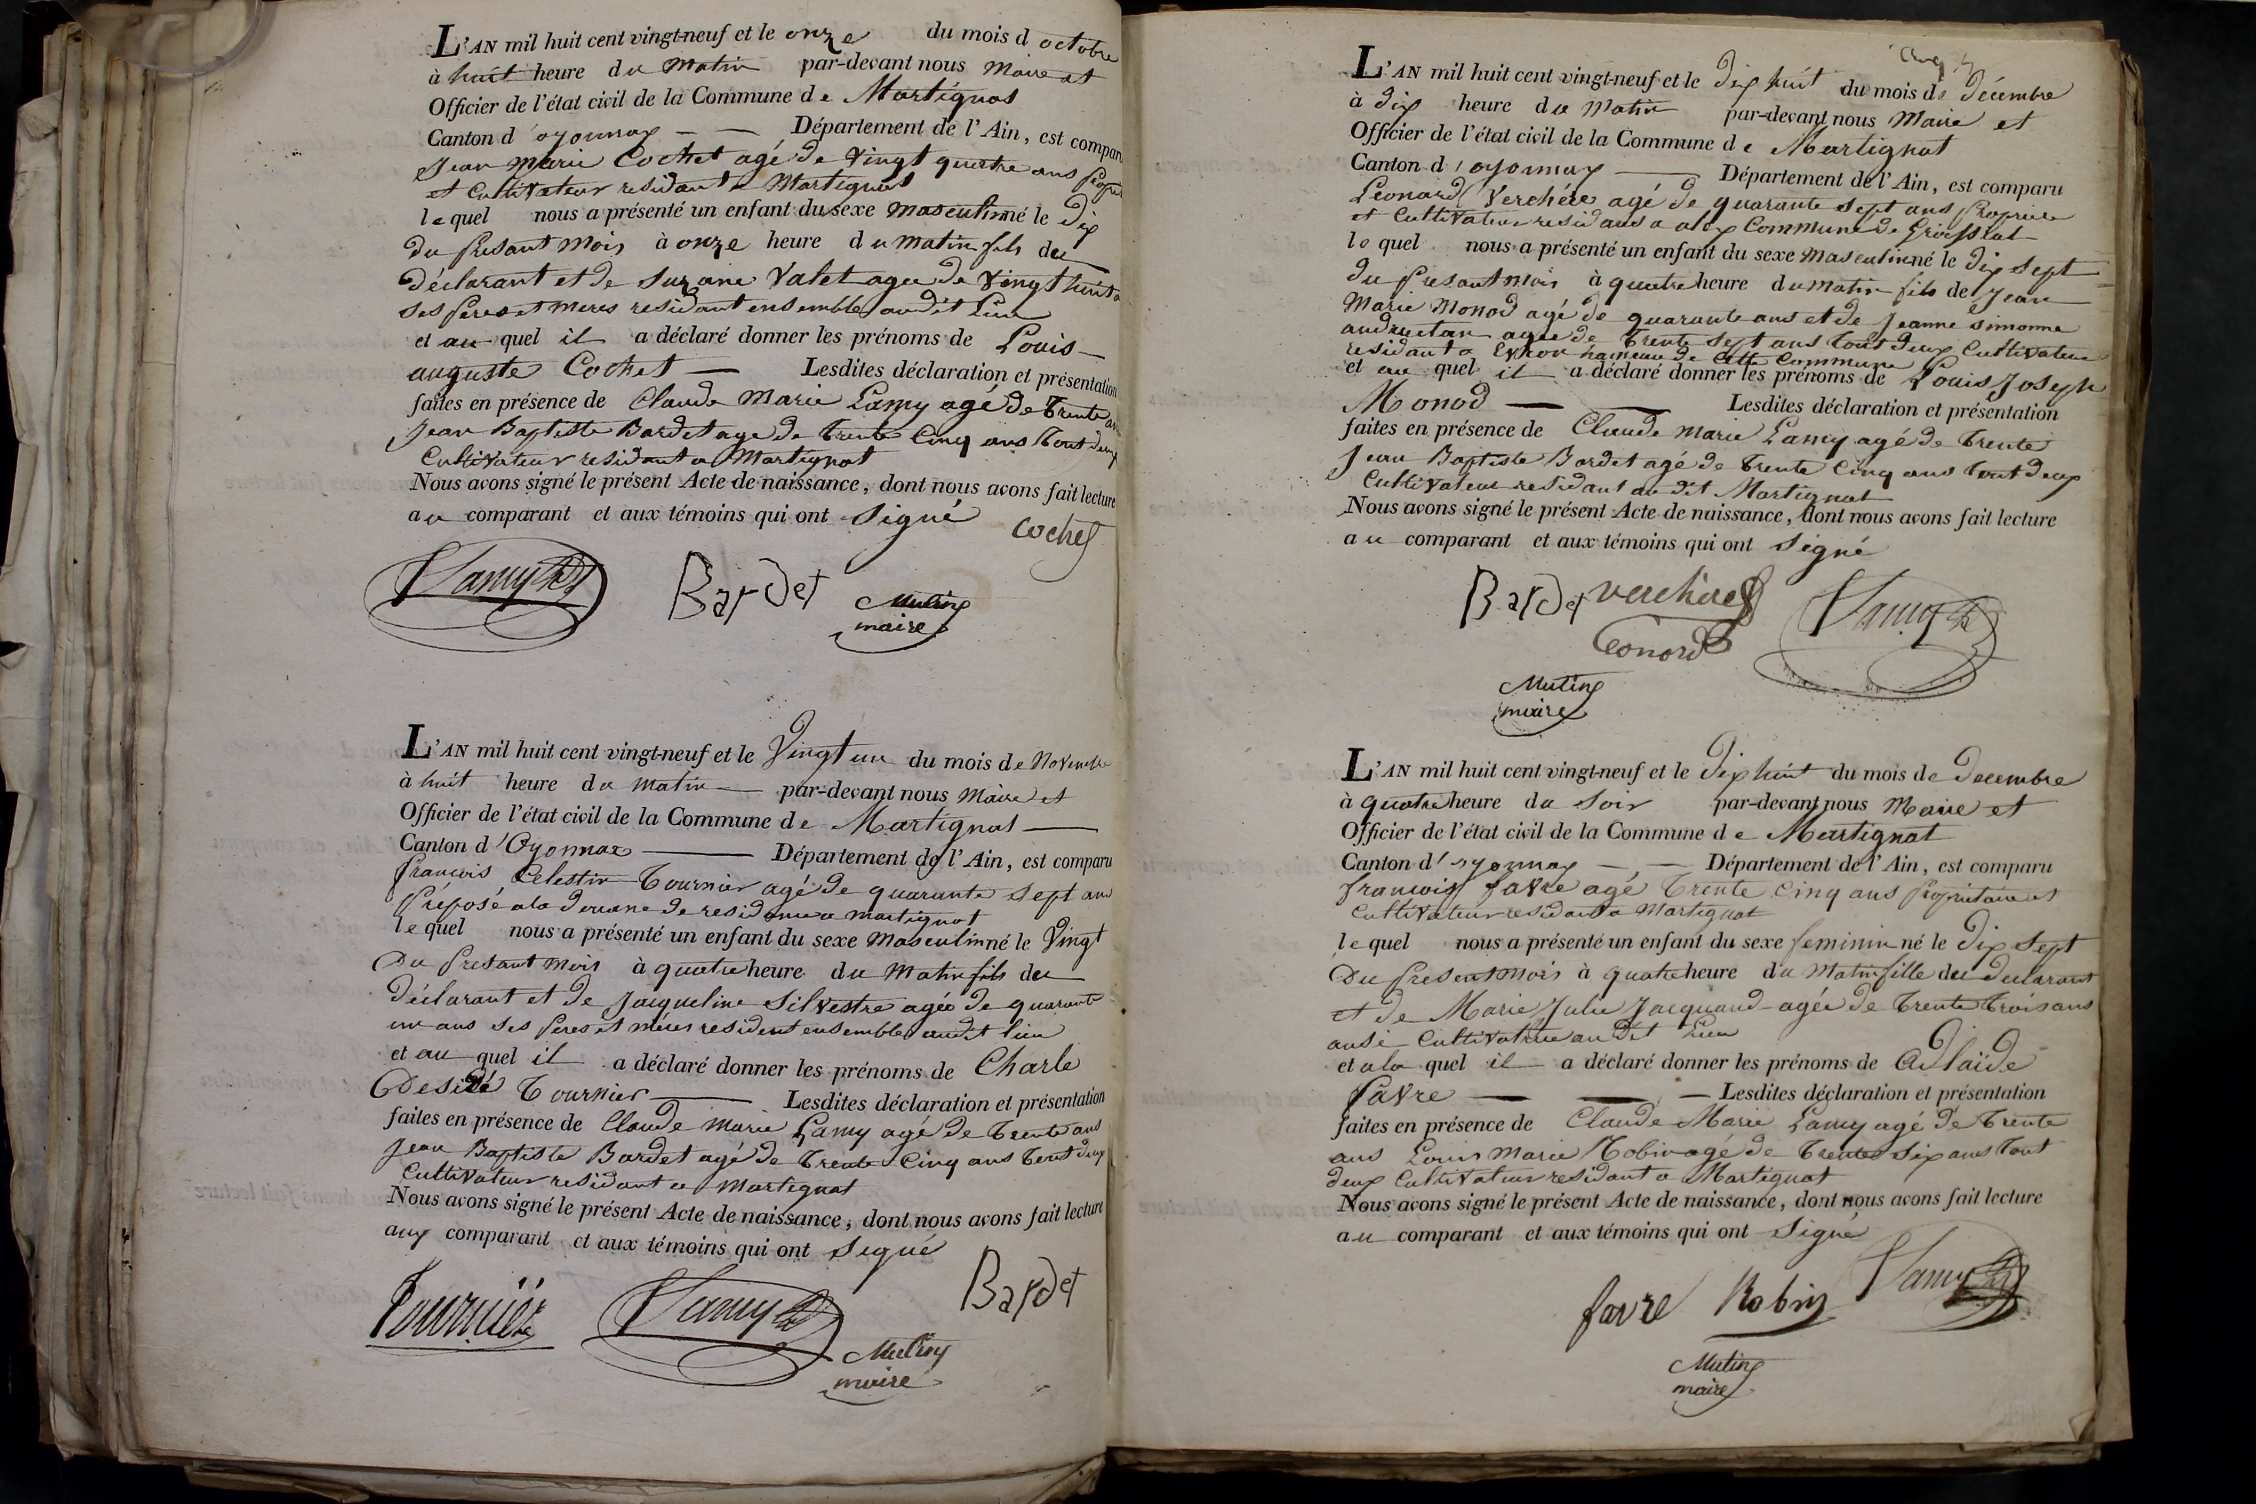 L'AN mil huit cent vingt-neuf et le onze du mois d octobre
à huit heure du matin par-devant nous maire et
Officier de l'état civil de la Commune de Martignat
Canton d'oyonnax — — Département de l'Ain, est compar
Jean marie Cochet agé de vingt quatre ans propr
et Cultivateur residant a Martignat
lequel nous a présenté un enfant du sexe masculin né le dix
du presant mois à onze heure du matin fils du
déclarant et de Suzanne Valet agee de Vingt huit a
ses peres et meres residant ensemble audit lieu
et au quel il a déclaré donner les prénoms de Louis
auguste Cochet — Lesdites déclaration et présentation
faites en présence de Claude Marie Lamy agé de trente an
Jean Baptiste Bardet age de trente Cinq ans tout deux
Cultivateur residant a Martignat
Nous avons signé le présent Acte de naissance, dont nous avons fait lecture
au comparant et aux témoins qui ont signé
Cochet
Lamy Bardet
Mutin
maire
L'AN mil huit cent vingt-neuf et le Vingt un du mois de Novembre
à huit heure du matin — par-devant nous Maire et
Officier de l'état civil de la Commune de Martignat —
Canton d'Oyonnax — Département de l'Ain, est comparu
francois Celestin Tournier agé de quarante sept ans
préposé ala douane de residence a martignat
lequel nous a présenté un enfant du sexe Masculin né le Vingt
Du presant mois à quatre heure du matin fils du
déclarant et de Jacqueline Silvestre agée de quarante
un ans ses peres et méres resident ensemble audit lieu
et au quel il a déclaré donner les prénoms de Charle
Desiré Tournier — Lesdites déclaration et présentation
faites en présence de Claude Marie Lamy agé de trente ans
Jean Baptiste Bardet agé de trente Cinq ans tout deux
Cultivateur residant a Martignat
Nous avons signé le présent Acte de naissance, dont nous avons fait lecture
aux comparant et aux témoins qui ont signé
Bardet
Tournier Lamy
Mutin
maire
L'AN mil huit cent vingt-neuf et le dix huit du mois de décembre
à dix heure du matin par-devant nous Maire et
Officier de l'état civil de la Commune de Martignat
Canton d'oyonnax — Département de l'Ain, est comparu
Léonard Verchère agé de quarante sept ans propriere
et Cultivateur residant a alex Commune de Groissiat
lequel nous a présenté un enfant du sexe masculin né le dix sept
du presant mois à quatre heure du matin fils de Jean
Marie Monod agé de quarante ans et de Jeanne Simonne
agée de trente sept ans tout deux Cultivateur
residant a hameau de cette Commune
et au quel il a déclaré donner les prénoms de Louis Joseph
Monod — — Lesdites déclaration et présentation
faites en présence de Claude marie Lamy agé de trente
Jean Baptiste Bardet agé de trente Cinq ans tout deux
Cultivateur residant au dit Martignat
Nous avons signé le présent Acte de naissance, dont nous avons fait lecture
au comparant et aux témoins qui ont signé
Bardet verchere Lamy
Léonord
Mutin
maire
L'AN mil huit cent vingt-neuf et le dix huit du mois de decembre
à quatre heure du soir par-devant nous Maire et
Officier de l'état civil de la Commune de Martignat
Canton d'oyonnax — — Département de l'Ain, est comparu
francois favre agé trente cinq ans proprietaire et
Cultivateur residant a Martignat
lequel nous a présenté un enfant du sexe feminin né le dix sept
Du present mois à quatre heure du matin fille du declarant
et de Marie Julie Jacquand agée de trente trois ans
ausi Cultivatrice au dit lieu
et ala quel il a déclaré donner les prénoms de Adlaïde
favre — — — Lesdites déclaration et présentation
faites en présence de Claude Marie Lamy agé de trente
ans Louis Marie Robin agé de trente six ans tout
deux Cultivateur residant a Martignat
Nous avons signé le présent Acte de naissance, dont nous avons fait lecture
au comparant et aux témoins qui ont signé
favre Robin Lamy
Mutin
maire